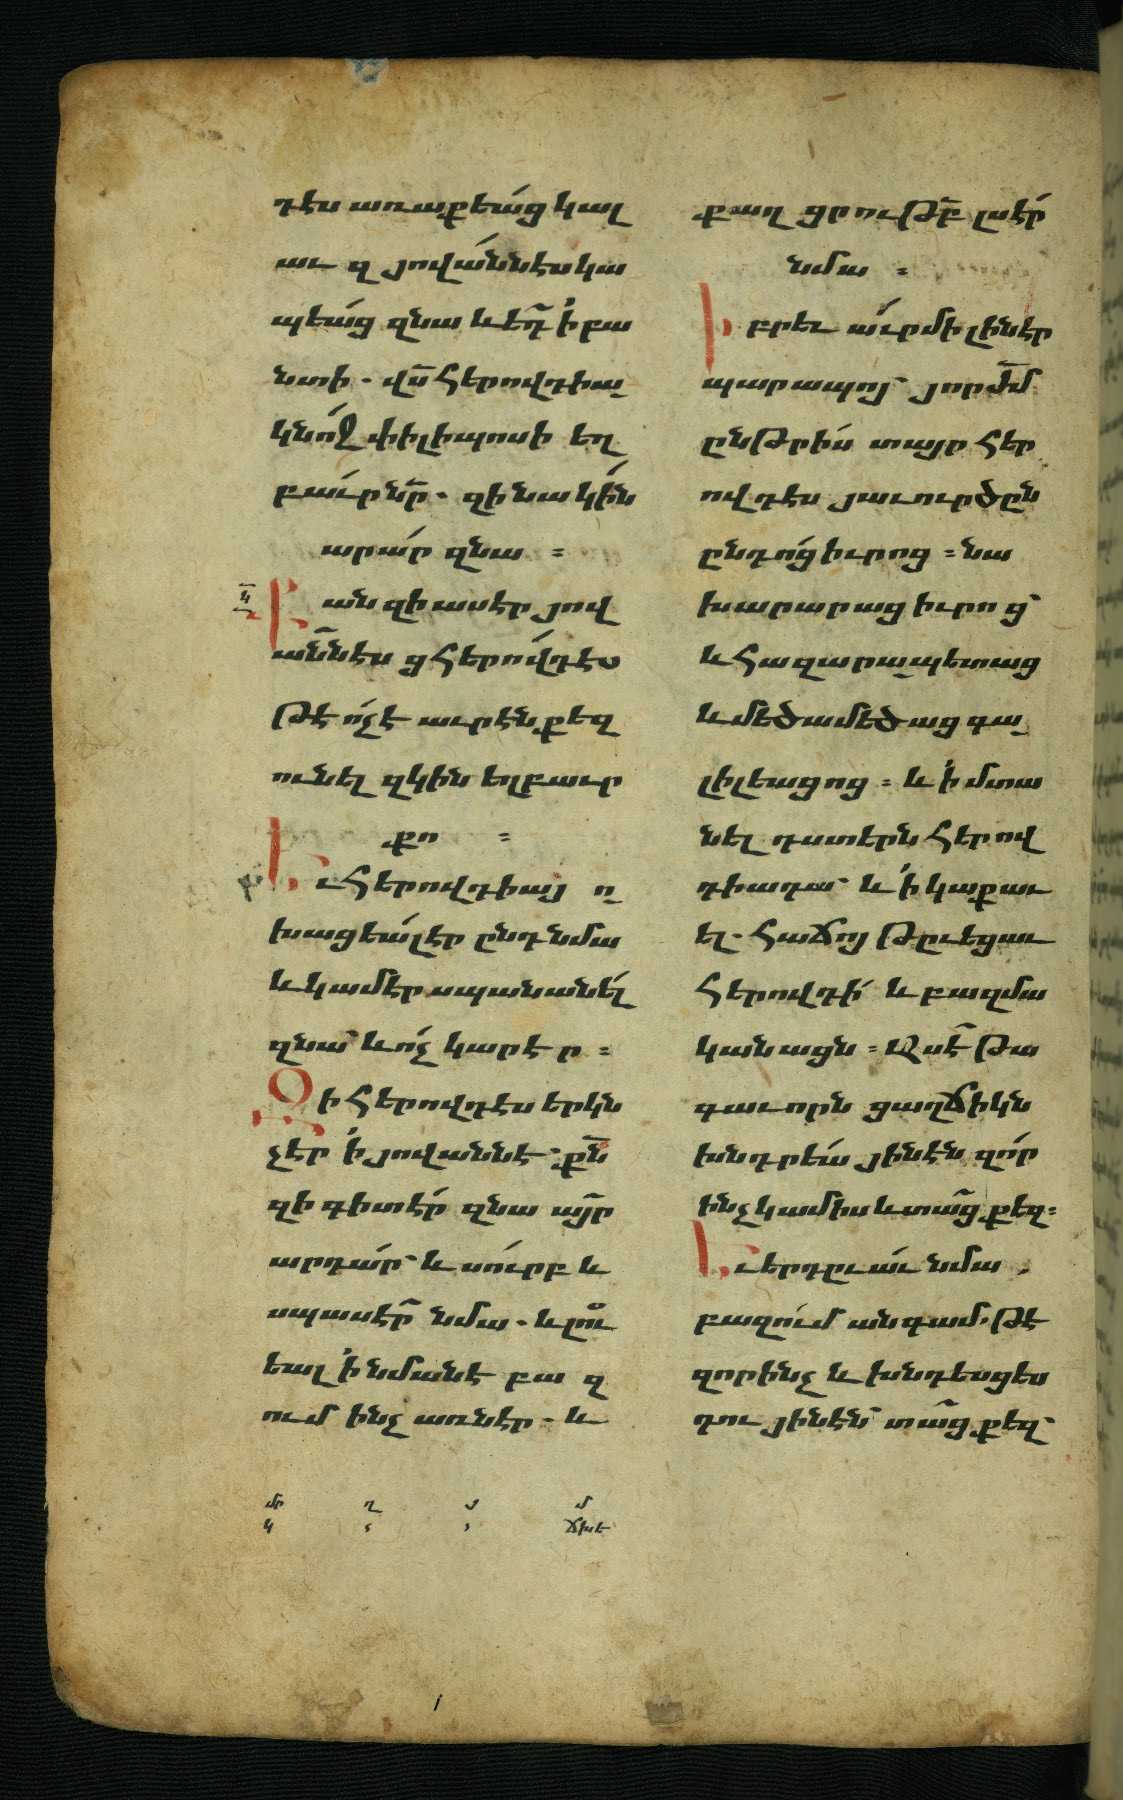 դէս առաքեաց կալ
աւ զյովաննէս կա
պեաց զնա և եդ ՛ի բա
նտի. վս հերովդիա
կնոջ փիլիպոսի եղ
բաւր նր. զի նա կին
արար զնա ։
ան զի ասէր յով
աննէս ցհերովդէս
թէ ոչ է աւրէն քեզ
ունել զկին եղբաւր
քո ։
Եւ հերովդիայ ո
խացեալ էր ընդ նմա
և կամէր սպանանել
զնա և ոչ կարէր ։
Զի հերովդէս երկն
չէր ՛ի յովաննէ քն
զի գիտէր զնա այր
արդար և սուրբ և
սպասէր նմա. և լու
եալ ՛ի նմանէ բազ
ում ինչ առնէր. և
քաղցրութբ լսէր
նմա ։
Իբրև աւր մի լինէր
պարապոյ յորժմ
ընթրիս տայր հեր
ովդէս յաւուր ծըն
ընդոց իւրոց ։ նա
խարարաց իւրոց
և հազարապետաց
և մեծամեծաց գա
լիլեացոց ։ և ՛ի մտա
նել դստերն հերով
դիադա և ՛ի կաքաւ
ել. հաճոյ թըւեցաւ
հերովդի և բազմա
կանացն ։ Ասէ թա
գաւորն ցաղճիկն
խնդրեա յինէն զոր
ինչ կամիս և տաց քեզ ։
Եւ երդըւաւ նմա ,
բազում անգամ. թէ
զոր ինչ և խնդեսցես
դու յինէն տաց քեզ
մր ղ յ մ
կ ճխէ